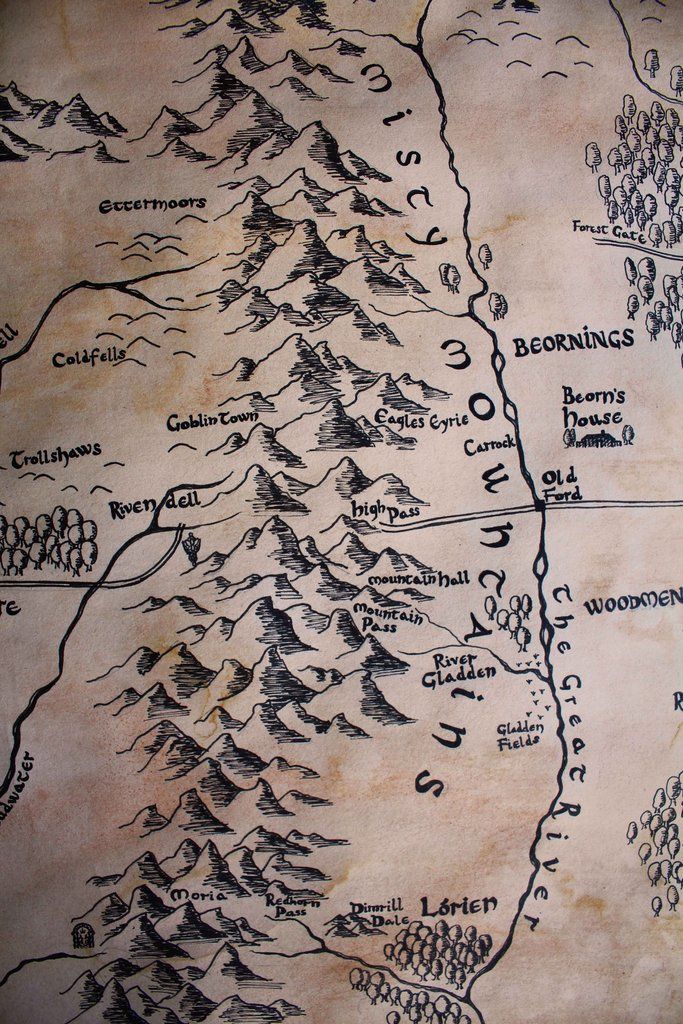 Misty
Ettermoors
Forest Gate
Coldfells
BEORNINGS
Mountains
Beorn's
House
Goblin Town
Eagles Eyrie
Carrock
Trollshaws
Old
Ford
Rivendell
High Pass
Mountain Hall
WOODMEN
Mountain
Pass
The Great River
River
Gladden
Gladden
Fields
Moria
Redhorn
Pass
Dimrill
Dale
Lórien